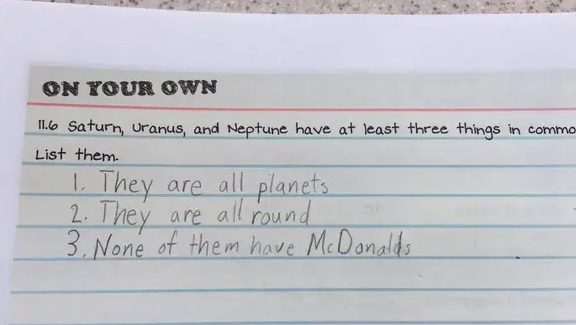 ON YOUR OWN
11.6 Saturn, Uranus, and Neptune have at least three things in commo
List them.
1. They are all planets
2. They are all round
3. None of them have McDonalds